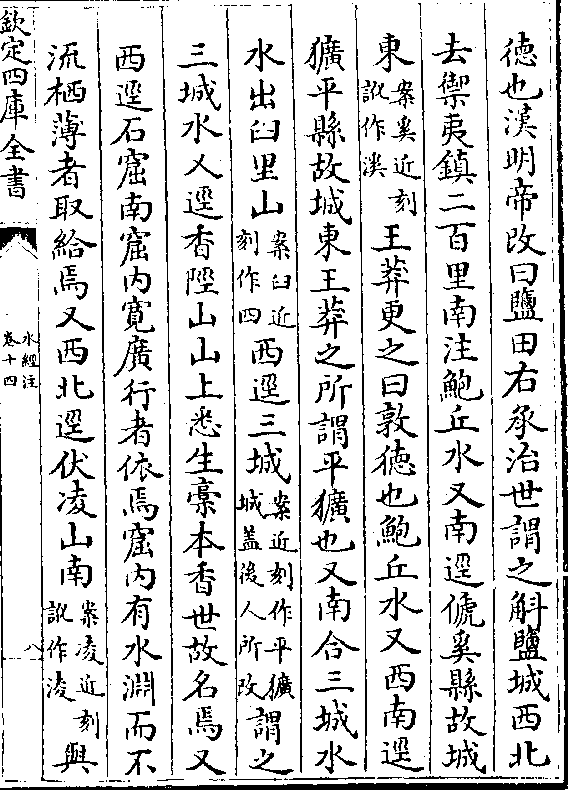 徳也漢明帝改曰鹽田右承治世謂之斛鹽城西北
去禦夷鎮二百里南注鮑丘水又南逕傂奚縣故城
東案奚近刻訛作溪王莽更之曰敦徳也鮑丘水又西南逕
獷平縣故城東王莽之所謂平獷也又南合三城水
水出臼里山案臼近刻作四西逕三城案近刻作平獷城盖後人所改謂之
三城水又逕香陘山山上悉生槀本香世故名焉又
西逕石窟南窟内寛廣行者依焉窟内有水淵而不
流栖薄者取給焉又西北逕伏凌山南案凌近刻訛作淩與
欽定四庫全書
水經注
卷十四
八